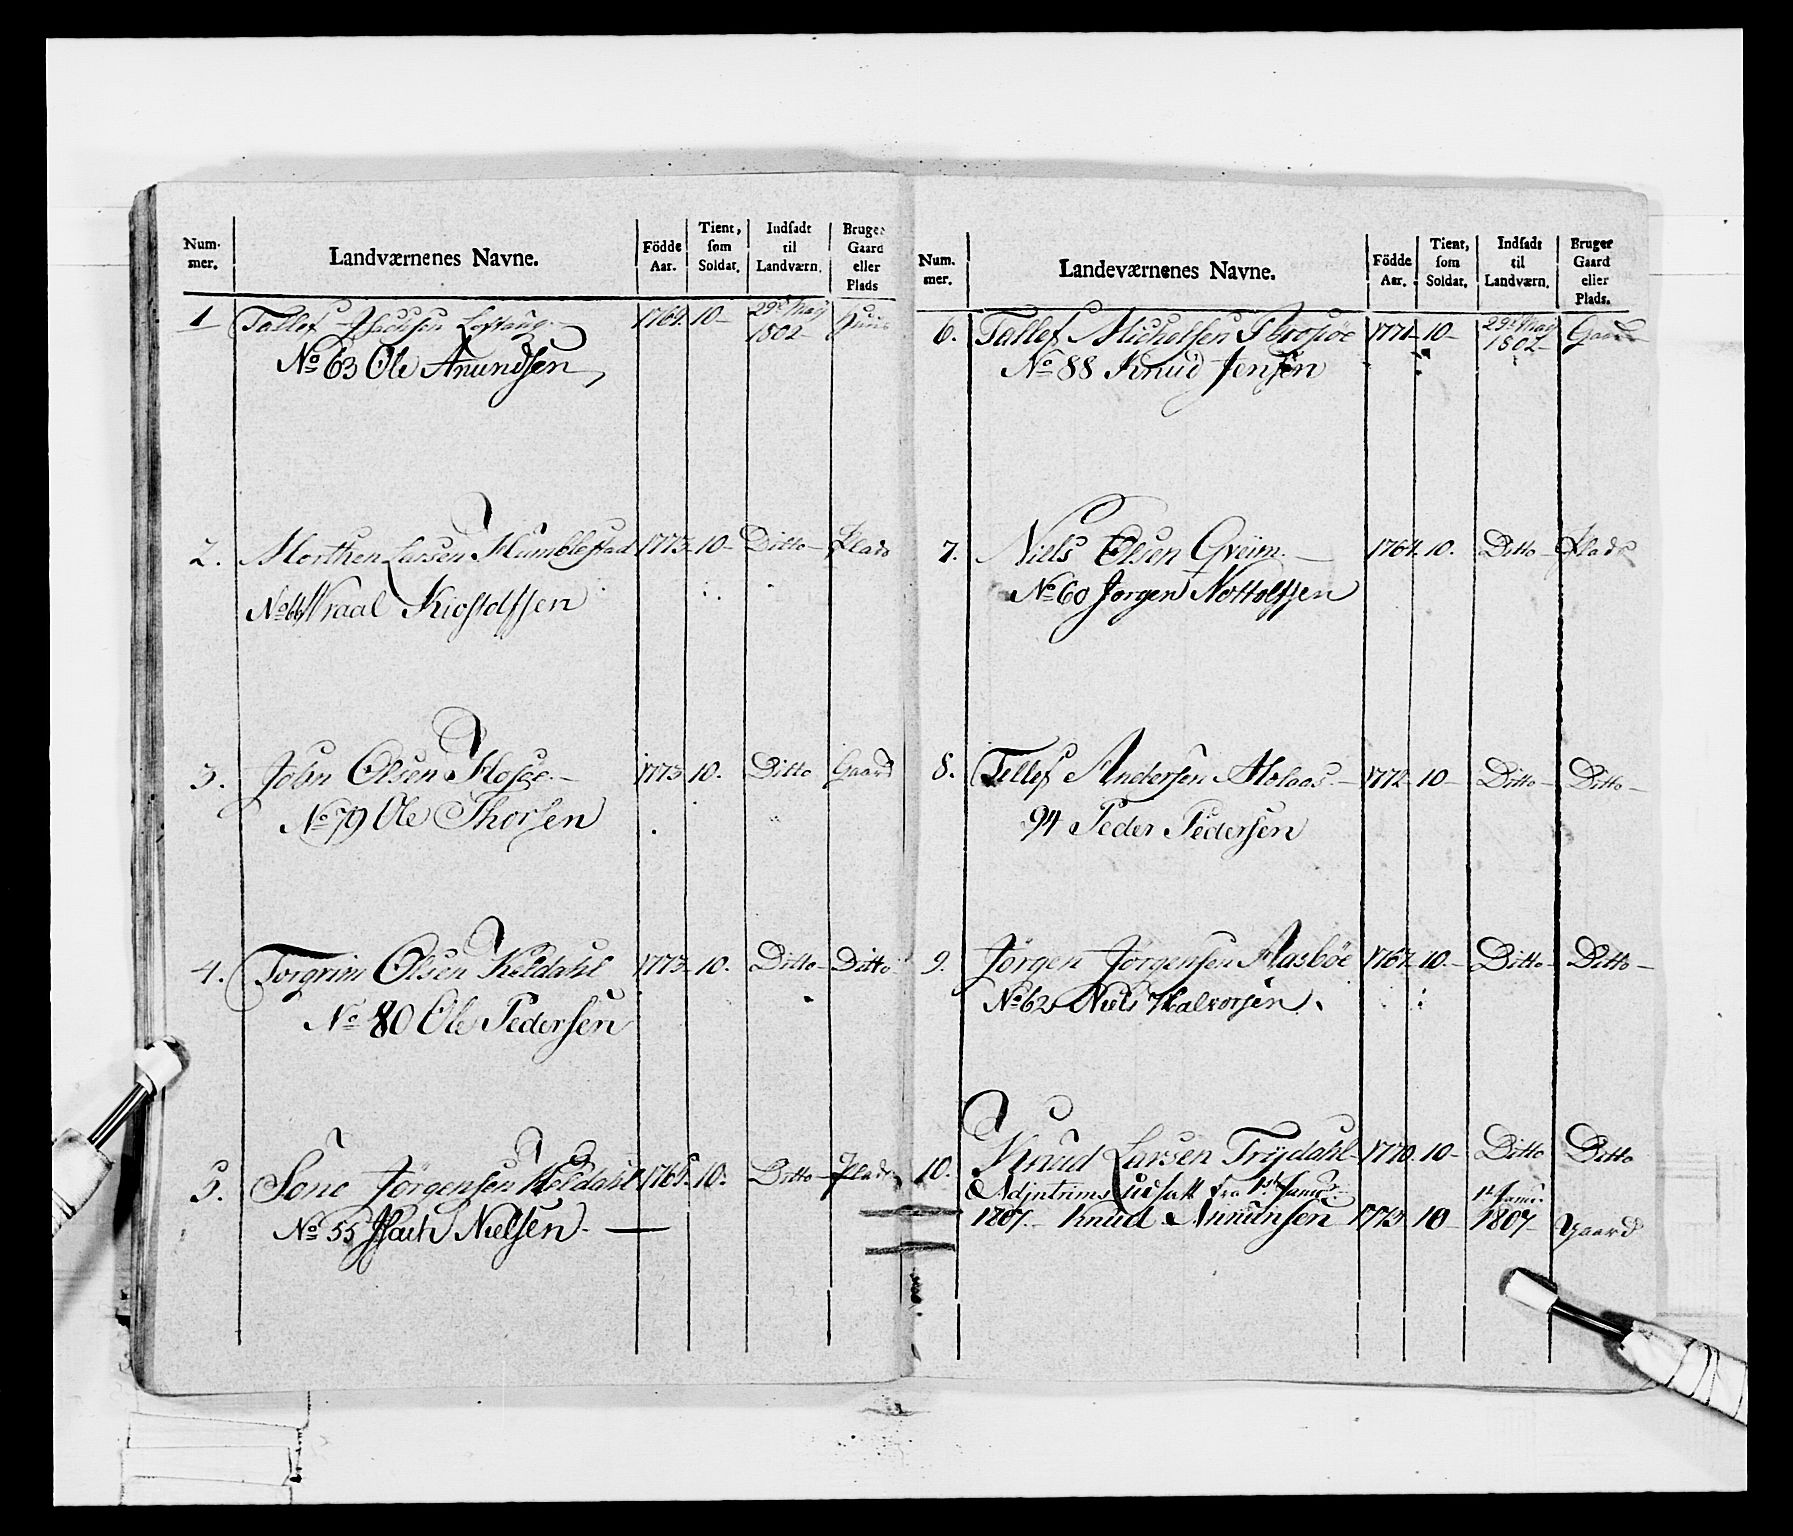 Num-
mer.
Landværnenes Navne.
Födde
Aar.
Tient,
som
Soldat.
Indsadt
til
Landværn.
Bruger
Gaard
eller
Plads
1 Tallef 1764. 10- 29de May 1802-
No 63 Ole Anundsen
2. Morthen Larsen Humblestad 1773. 10- Ditto- Plads
No 66 Wraal Kiostolfsen
3. John Olsen 1773 10. Ditto Gaard
No 79 Ole Thorsen
4. Torgrim Olsen Keldahl 1773. 10. Ditto- Ditto
No 80 Ole Pedersen
5. Sone Jörgensen Keldahl 1765. 10. Ditto- Plads
No 55 Isach Nielsen-
Num.
mer.
Landeværnenes Navne.
Födde
Aar.
Tient,
som
Soldat.
Indsadt
til
Landværn.
Bruger
Gaard
eller
Plads.
6. Tallef Michelsen 1771- 10- 29de May 1802- Gaard
No 88 Knud Jensen
7. Niels Olsen Greim.- 1764. 10. Ditto- Plads
No 60 Jörgen Nottolfsen
8. Tellef Andersen 1772- 10- Ditto- Ditto-
94 Peder Pedersen
9. Jörgen Jörgensen Aasböe 1767. 10.- Ditto- Ditto-
No 62 Niels Halvorsen.
10. Knud Larsen Trÿdahl- 1770. 10- Ditto Ditto
udsatt fra 1st Janur. 1st Janr.
1807.- Knud Anunsen 1773. 10- 1807- Gaard